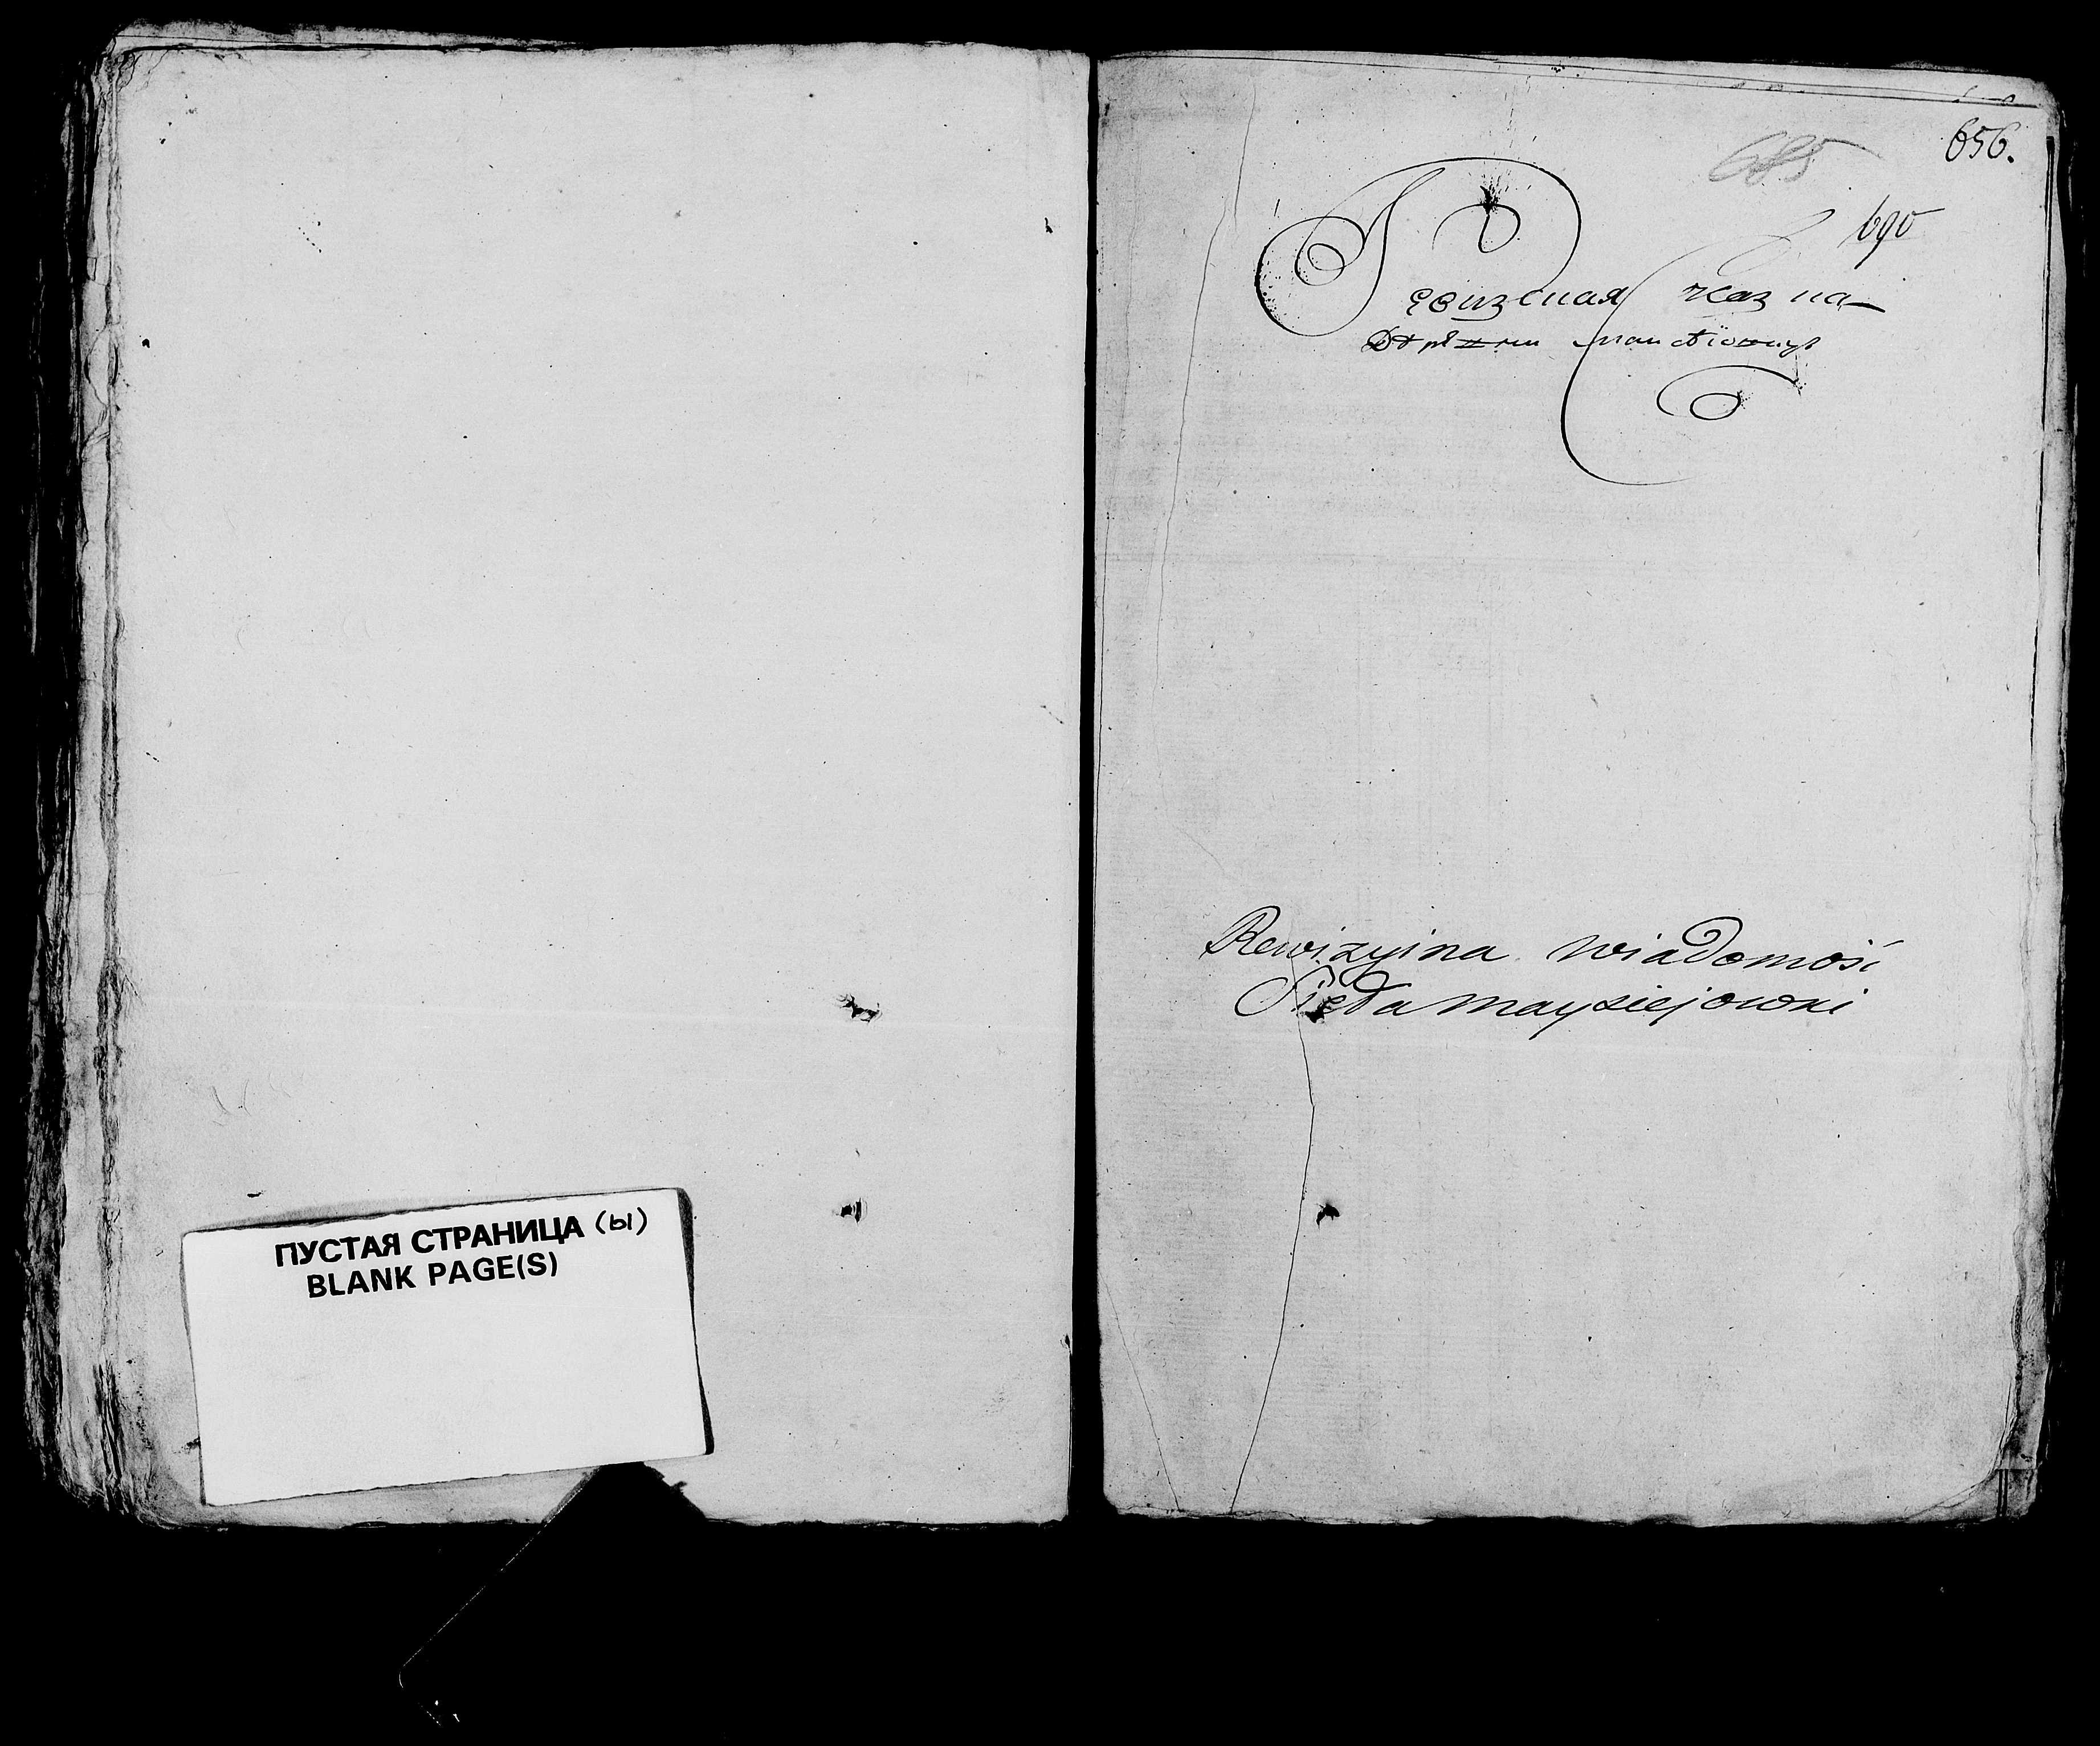 ПУСТАЯ СТРАНИЦА (ы)
BLANK PAGE(S)
656.
685
690
Ревизская Сказка
Rewizyina wiadomość